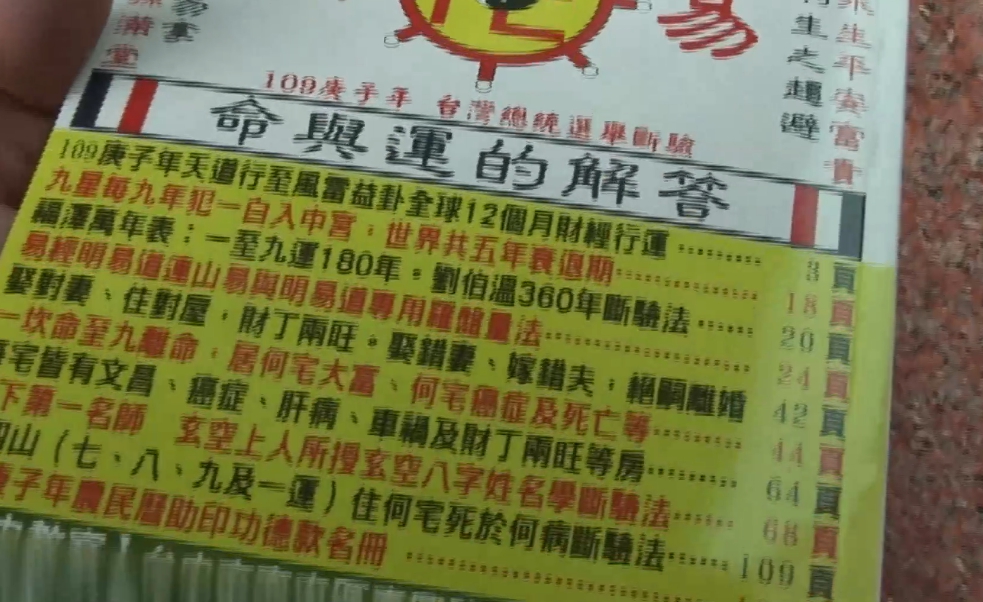 易
109庚子年 台灣總統選舉斷驗
命與運的解答
生之趨避
生平安富貴
109庚子年天道行至風雷益卦全球12個月財經行運 ........ 3 頁
九星每九年犯一自入中宮；世界共五年衰退期 ........ 18 頁
福澤萬年表：一至九運180年。劉伯溫360年斷驗法 ...... 20 頁
易經明易道連山易與明易道專用羅盤量法 ........ 24 頁
娶對妻、住對屋，財丁兩旺。娶錯妻、嫁錯夫；絕嗣離婚 42 頁
一坎命至九離命，居何宅大富、何宅癌症及死亡等 ........ 44 頁
宅皆有文昌、癌症、肝病、車禍及財丁兩旺等房 ...... 64 頁
下第一名師 玄空上人所授玄空八字姓名學斷驗法 ...... 68 頁
山（七、八、九及一運）住何宅死於何病斷驗法 ...... 109 頁
庚子年農民曆助印功德款名冊 ........